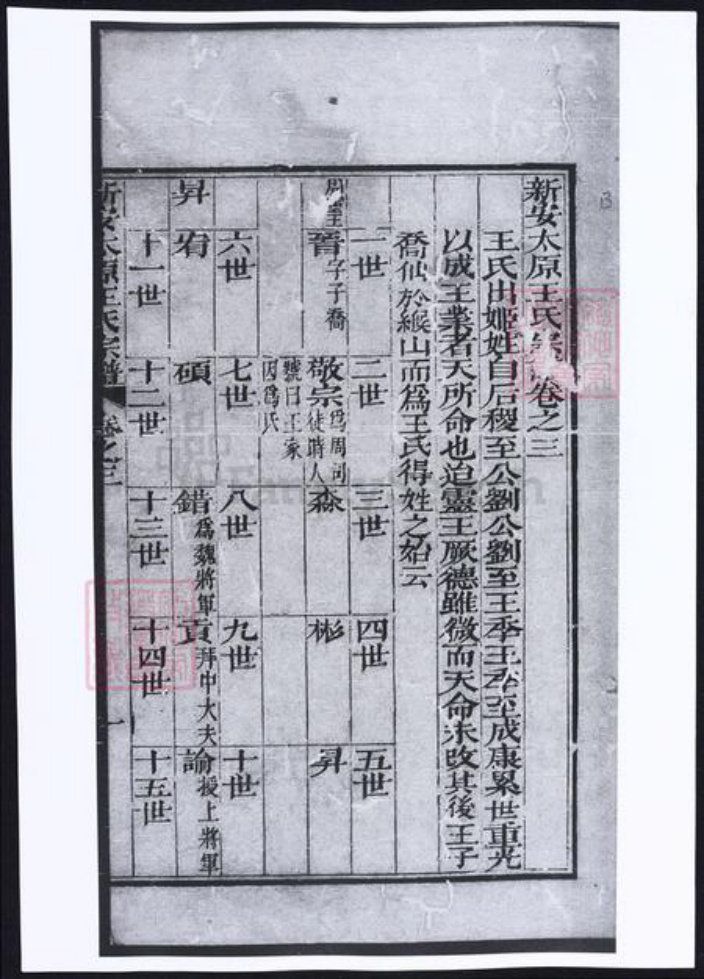 新安太原王氏宗譜卷之三
王氏出姬姓自后稷至公劉公劉至王季王季至成康累世重光
以成王業者天所命也迨靈王厥德雖微而天命未改其後王子
喬仙於緱山而為王氏得姓之始云
一世 二世 三世 四世 五世
周靈王 晉字子喬 敬宗為周司徒時人號曰王家因爲氏 森 彬 昇
六世 七世 八世 九世 十世
昇 宥 碩 錯爲魏將軍 賁拜中大夫 論援上將軍
十一世 十二世 十三世 十四世 十五世
新安太原王氏宗譜 卷之三 一